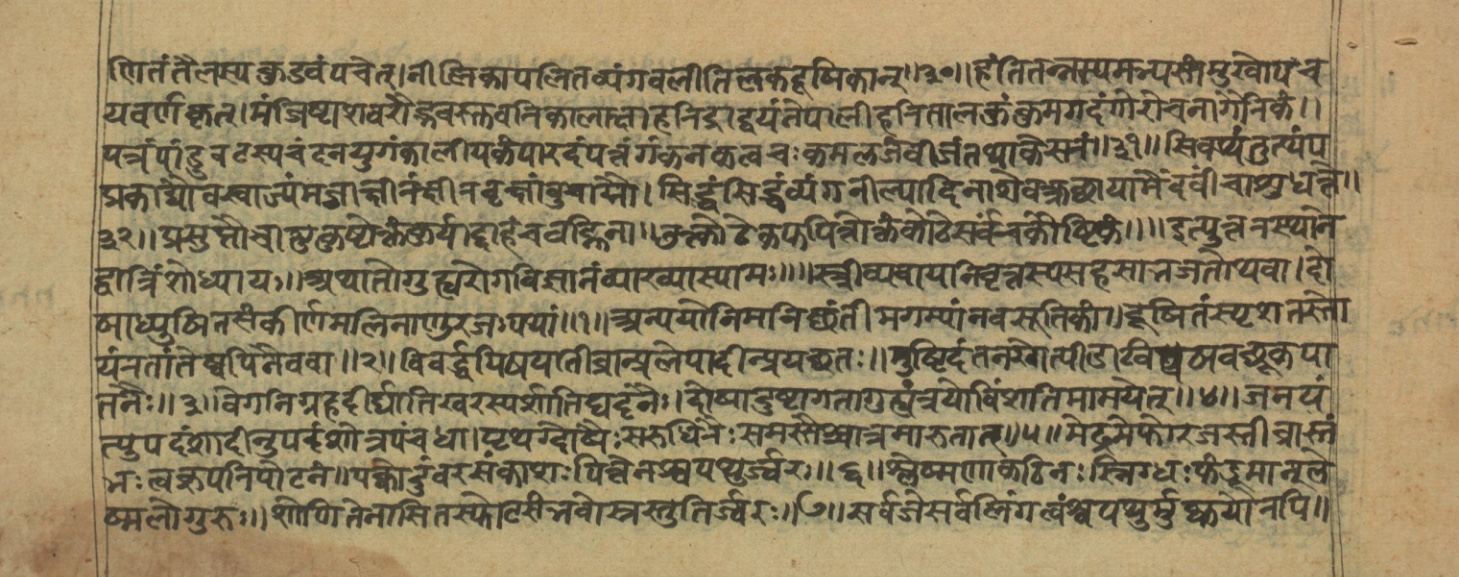 णितं तैलस्य कुडवं पचेत्। नीलिकापलितव्यंगवलीतिलकदूषिकान्॥३०॥ हंति तन्नस्यमभ्यस्तं मुखोपच
यवर्णकृत्। मंजिष्टाशबरोद्भवस्तुवरिकालाक्षाहरिद्राद्वयं नेपालीहरितालकुंकुमगदंगोरोचनागैरिकं॥
पत्रं पांडुवटस्यचंदनयुगंकालीयकंपारदंपत्तंगंकनकत्वचः कमलजंबीजंतथाकेसरं॥३१॥ सिक्थंतुत्थंप
द्मकाद्योवसाज्यंमज्जाक्षीरंक्षीरवृक्षांबुचाग्नौ। सिद्धंसिद्धंव्यंगनील्यादिनाशेवक्त्रछायामैंदवींचाशुधत्ते॥
३२॥ प्रसुप्तौचास्रकुष्टोक्तंकुर्याद्दाहंचवह्निना॥ उत्कोठेकफपित्तोक्तंकोठेसर्वंचकौष्टिकं॥॥ इत्युत्तरस्थाने
द्वात्रिंशोध्यायः॥ अथातोगुह्यरोगविज्ञानंव्याख्यास्यामः॥॥ स्त्रीव्यवायनिवृत्तस्यसहसाभजतोथवा। दो
षाध्युषितसंकीर्णमलिनाणुरजःपथां॥१॥ अन्ययोनिमनिछंतीमगम्यांनवसूतिकां॥ दूषितंस्पृशतस्तो
यंरतांतेष्वपिनैववा॥२॥ विवर्द्धयिषयातीव्रान्प्रलेपादीन्प्रयच्छतः॥ मुष्टिदंतनखोत्पीडाविषवच्छूकपा
तनैः॥३॥ वेगनिग्रहदीर्घातिखरस्पर्शातिघट्टनैः। दोषादुष्टागतागुह्यंत्रयोविंशतिमामयेत्॥४॥ जनयं
त्युपदंशादीनुपदंशोत्रपंचधा। पृथग्दोषैःसरुधिरैःसमस्तैश्चात्रमारुतात्॥५॥ मेढ्रेशोफोरुजस्तीव्रास्तं
भःत्वक्परिपोटनं॥ पक्वोदुंबरसंकाशःपित्तेनश्वयथुर्ज्वरः॥६॥ श्लेष्मणाकठिनःस्निग्धःकंडूमान्शीत
लोगुरुः॥ शोणितेनासितस्फोटसंभवोस्रस्रुतिर्ज्वरः॥७॥ सर्वजेसर्वलिंगत्वंश्वयथुर्मुष्कयोरपि॥